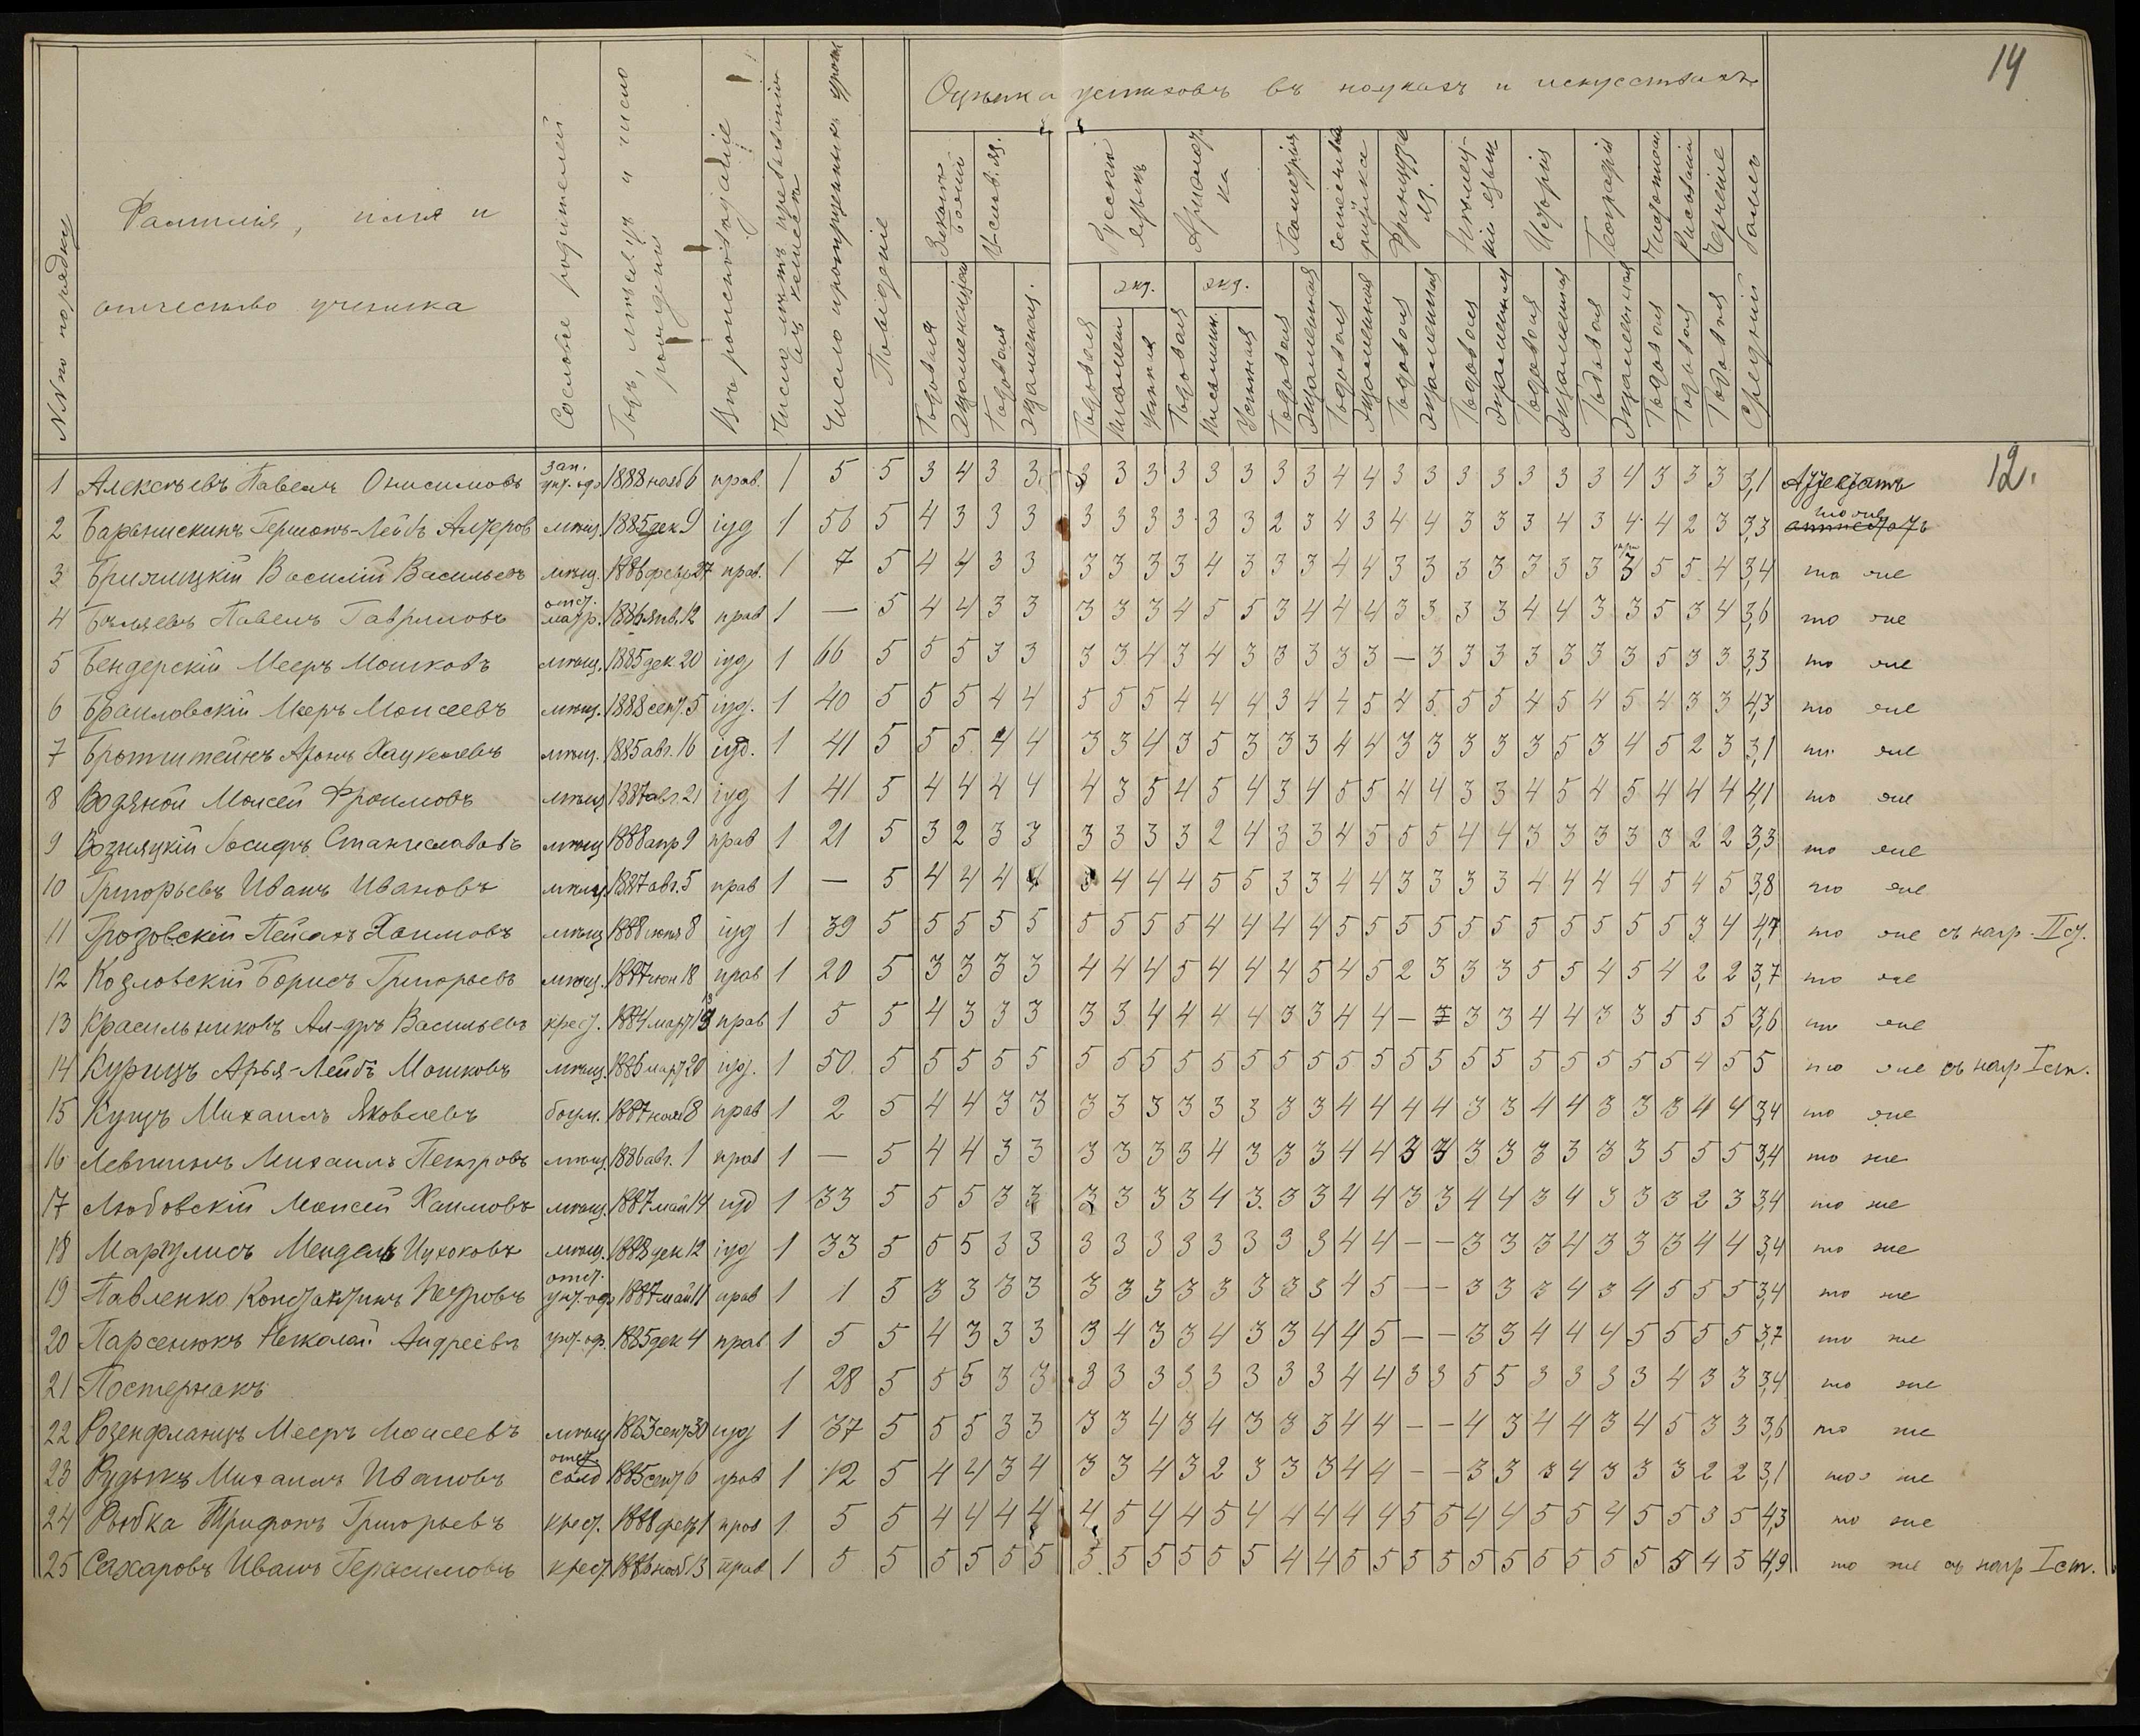 14
Оцѣнка успѣховъ въ наукахъ и искусствахъ
№№ по порядку
Фамилія, имя и
отчество ученика
Сословіе родителей
Годъ, мѣсяцъ и число
рожденія
Вѣроисповѣданіе
Число лѣтъ пребыванія
въ классѣ
Число пропущенныхъ уроковъ
Поведеніе
Законъ
божій
Ц-слав. яз.
Русскій
языкъ
Ариѳмети
ка
Геометрія
Французск
яз.
Нѣмец-
кій языкъ
Исторія
Географія
Чистописан
Рисованіе
Черченіе
Средній баллъ
экз. экз.
Годовая Экзаменаціон Годовая Экзаменац. Годовая Письмен Устная Годовая Письменн. Устная Годовая Экзаменная Годовая Экзаменная Годовая Экзаменная Годовая Экзаменная Годовая Экзаменная Годовая Экзаменная Годовая Годовая Годовая
12.
1 Алексѣевъ Павелъ Онисимовъ зап. унт.-оф. 1888 нояб 6 прав. 1 5 5 3 4 3 3 3 3 3 3 3 3 3 3 4 4 3 3 3 3 3 3 3 4 3 3 3 3,1 Аттестатъ
2 Гершонъ-Лейбъ Алтеровъ мѣщ. 1885 дек 9 іуд 1 56 5 4 3 3 3 3 3 3 3 3 3 2 3 4 3 4 4 3 3 3 4 3 4 4 2 3 3,3 то же аттестатъ
3 Василій Васильевъ мѣщ. 1886 февр 27 прав. 1 7 5 4 4 3 3 3 3 3 3 4 3 3 3 4 4 3 3 3 3 3 3 3 3 5 5 4 3,4 то же
4 Бѣляевъ Павелъ Гавриловъ отст. матр. 1886 янв. 12 прав 1 — 5 4 4 3 3 3 3 3 4 5 5 3 4 4 4 3 3 3 3 4 4 3 3 5 3 4 3,6 то же
5 Бендерскій Мееръ Мошковъ мѣщ. 1885 дек. 20 іуд 1 66 5 5 5 3 3 3 3 4 3 4 3 3 3 3 3 — 3 3 3 3 3 3 3 5 3 3 3,3 то же
6 Браиловскій Мееръ Моисеевъ мѣщ. 1888 сент. 5 іуд. 1 40 5 5 5 4 4 5 5 5 4 4 4 3 4 4 5 4 5 5 5 4 5 4 5 4 3 3 4,3 то же
7 Аронъ Хацкелевъ мѣщ. 1885 авг. 16 іуд. 1 41 5 5 5 4 4 3 3 4 3 5 3 3 3 4 4 3 3 3 3 3 5 3 4 5 2 3 3,1 то же
8 Водяной Моисей Фроимовъ мѣщ 1887 авг. 21 іуд 1 41 5 4 4 4 4 4 3 5 4 5 4 3 4 5 5 4 4 3 3 4 5 4 5 4 4 4 4,1 то же
9 Возняцкій Іосифъ Станиславовъ мѣщ 1888 апр 9 прав 1 21 5 3 2 3 3 3 3 3 3 2 4 3 3 4 5 5 5 4 4 3 3 3 3 3 2 2 3,3 то же
10 Григорьевъ Иванъ Ивановъ мѣщ 1887 авг. 5 прав 1 — 5 4 4 4 4 3 4 4 4 5 5 3 3 4 4 3 3 3 3 4 4 4 4 5 4 5 3,8 то же
11 Грозовскій Пейсахъ Хаимовъ мѣщ 1888 іюня 8 іуд 1 39 5 5 5 5 5 5 5 5 5 4 4 4 4 5 5 5 5 5 5 5 5 5 5 5 3 4 4,7 то же съ нагр. II ст.
12 Козловскій Борисъ Григорьевъ мѣщ. 1887 іюн 18 прав 1 20 5 3 3 3 3 4 4 4 5 4 4 4 5 4 5 2 3 3 3 5 5 4 5 4 2 2 3,7 то же
13 Красильниковъ Ал-дръ Васильевъ крест. 1884 март 13 прав 1 5 5 4 3 3 3 3 3 4 4 4 4 3 3 4 4 — 3 3 3 4 4 3 3 5 5 5 3,6 то же
14 Курицъ Арья-Лейбъ Мошковъ мѣщ. 1886 март 20 іуд. 1 50 5 5 5 5 5 5 5 5 5 5 5 5 5 5 5 5 5 5 5 5 5 5 5 5 4 5 5 то же съ нагр I ст.
15 Купцъ Михаилъ Яковлевъ 1887 нояб 8 прав 1 2 5 4 4 3 3 3 3 3 3 3 3 3 3 4 4 4 4 3 3 4 4 3 3 3 4 4 3,4 то же
16 Левшинъ Михаилъ Петровъ мѣщ. 1886 авг. 1 прав 1 — 5 4 4 3 3 3 3 3 3 4 3 3 3 4 4 3 3 3 3 3 3 3 3 5 5 5 3,4 то же
17 Любовскій Моисей Хаимовъ мѣщ. 1887 май 14 іуд 1 33 5 5 5 3 3 3 3 3 3 4 3 3 3 4 4 3 3 4 4 3 4 3 3 3 2 3 3,4 то же
18 Маргулисъ Мендель Ицковъ мѣщ. 1888 дек 12 іуд 1 33 5 5 5 3 3 3 3 3 3 3 3 3 3 4 4 — — 3 3 3 4 3 3 3 4 4 3,4 то же
19 Павленко Константинъ Петровъ отст. унт.-оф 1887 май 11 прав 1 1 5 3 3 3 3 3 3 3 3 3 3 3 3 4 5 — — 3 3 3 4 3 4 5 5 5 3,4 то же
20 Парсенюкъ Николай Андреевъ унт.-оф. 1885 дек 4 прав 1 5 5 4 3 3 3 3 4 3 3 4 3 3 4 4 5 — — 3 3 4 4 4 5 5 5 5 3,7 то же
21 Постернакъ 1 28 5 5 5 3 3 3 3 3 3 3 3 3 3 4 4 3 3 5 5 3 3 3 3 4 3 3 3,4 то же
22 Розенфланцъ Мееръ Моисеевъ мѣщ 1883 сент 30 іуд 1 37 5 5 5 3 3 3 3 4 3 4 3 3 3 4 4 — — 4 3 4 4 3 4 5 3 3 3,6 то же
23 Рудыкъ Михаилъ Ивановъ отст. солд 1885 сент 6 прав 1 12 5 4 4 3 4 3 3 4 3 2 3 3 3 4 4 — — 3 3 3 4 3 3 3 2 2 3,1 то же
24 Рыбка Трифонъ Григорьевъ крест. 1888 февр 1 прав 1 5 5 4 4 4 4 4 5 4 4 5 4 4 4 4 4 5 5 4 4 5 5 4 5 5 3 5 4,3 то же
25 Сахаровъ Иванъ Герасимовъ крест. 1886 нояб 13 прав 1 5 5 5 5 5 5 5 5 5 5 5 5 4 4 5 5 5 5 5 5 5 5 5 5 5 4 5 4,9 то же съ нагр I ст.